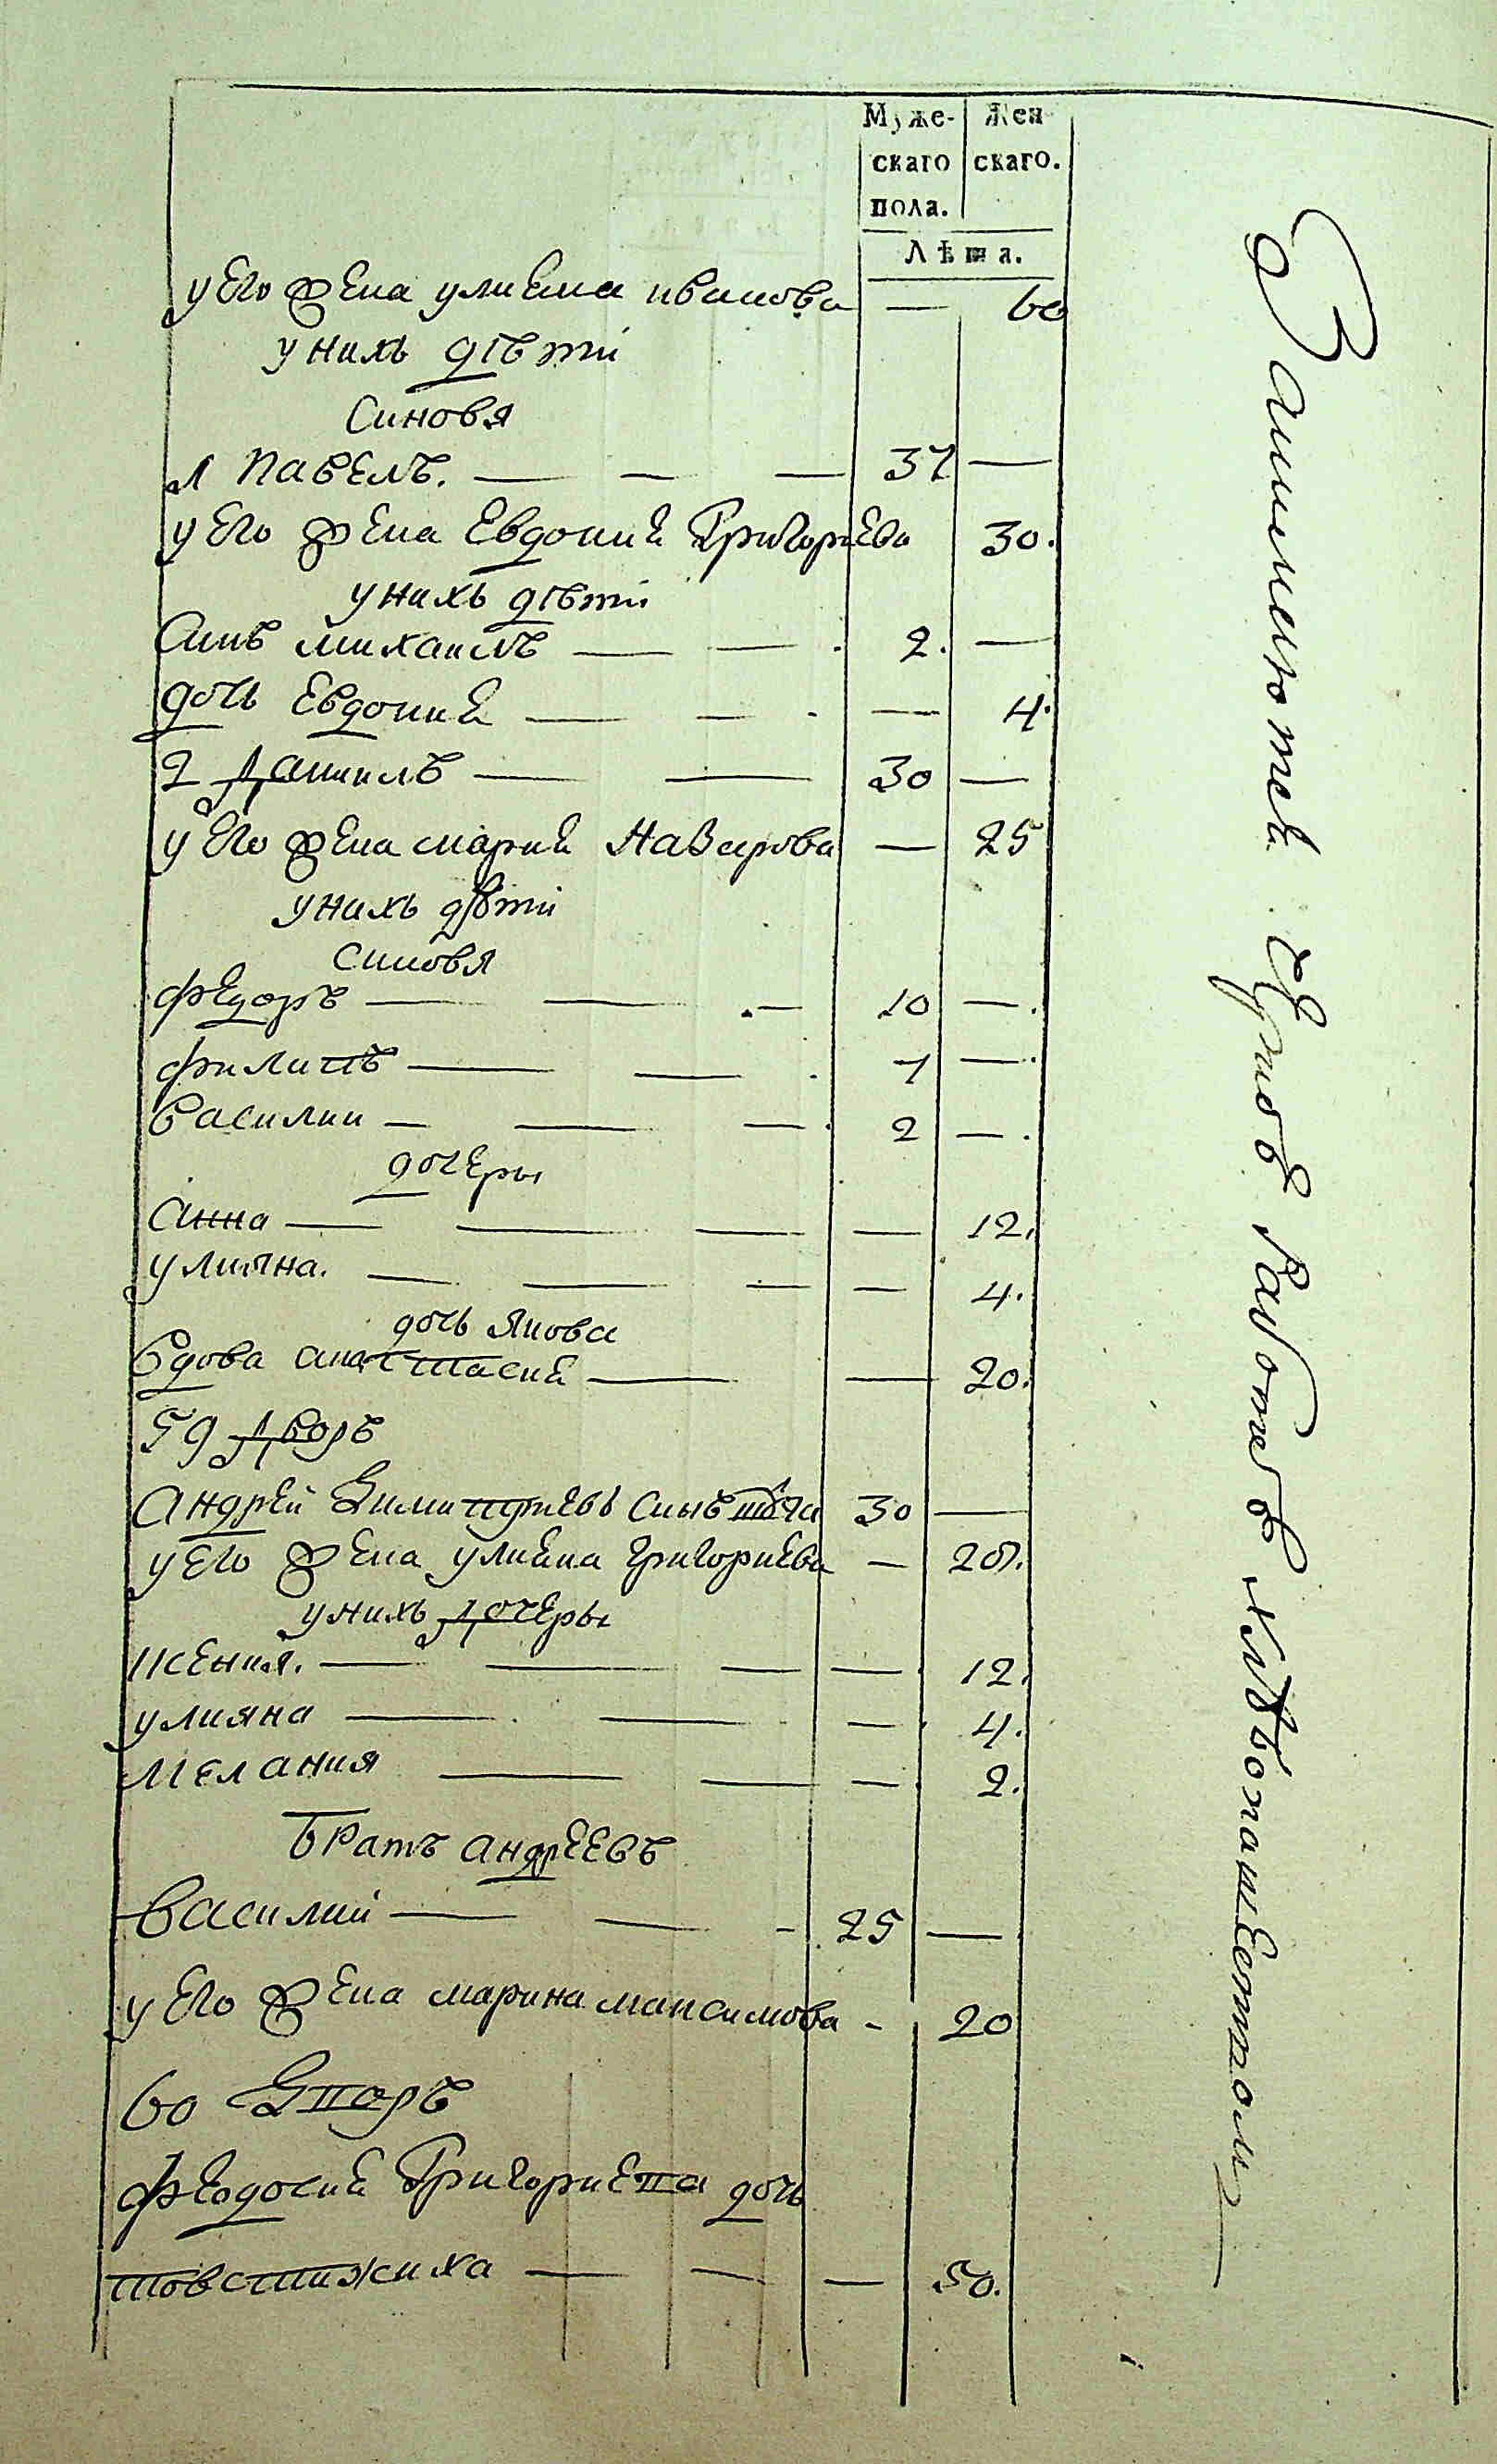 Муже- Жен
скаго скаго.
пола.
Лѣта.
у его жена улиана иванова — 60
у нихъ дѣти
Синовя
1 павелъ. — — — 37 —
у его жена Евдокия Григориева 30.
у нихъ дѣти
Синъ михаилъ — — 2. —
дочь Евдокия — — — 4.
2 Даниилъ — — 30 —
у его жена мария Назарова — 25
у нихъ дѣти
синовя
федоръ — — — 10 —
филипъ — — 7 —
василии — — — 2 —
дочеры
Анна — — — — 12.
улияна. — — — — 4.
дочь Якова
вдова анастасия — — 20.
59 Дворъ
Андрей Димитриевъ синъ 30 —
у его жена улиана григориева — 28.
у нихъ Дочеры
ксения. — — — — 12.
улияна — — — 4.
Мелания — — — 2.
Братъ андреевъ
василий — — - 25 —
у его жена марина максимова - 20
60 Дворъ
феодосия Григориева дочь
товстижиха — — — 50.
Занимаются Ерт҃ов Работов хлѣбопашеством